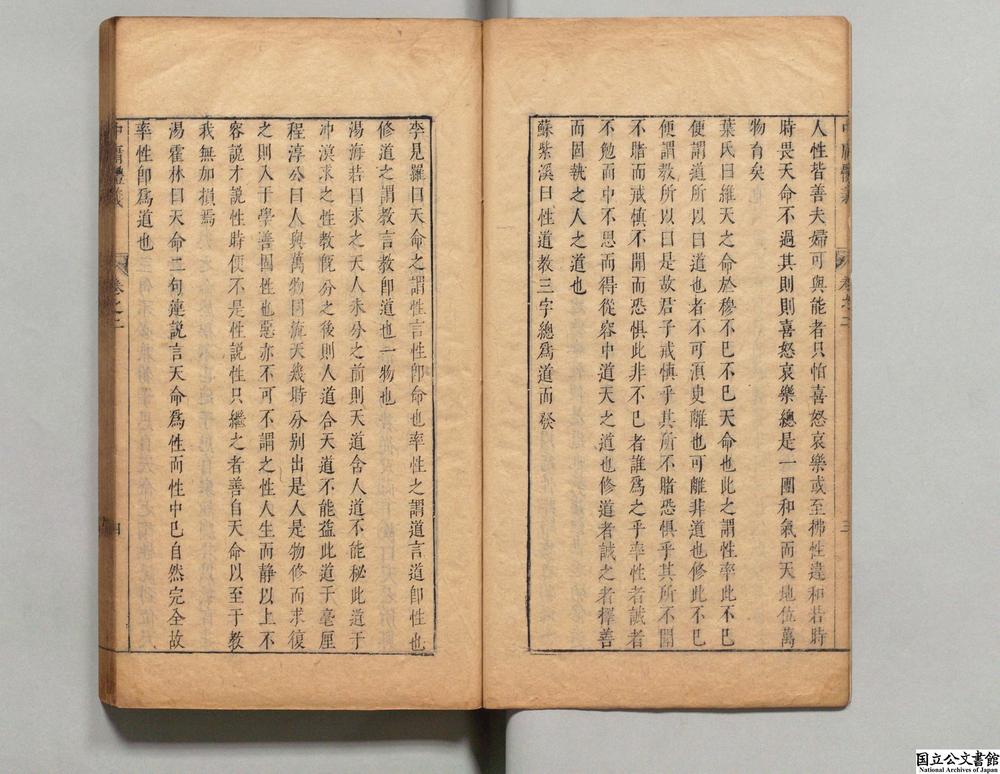 人性皆善夫婦可與能者只怕喜怒哀樂或至拂性違和若時
時畏天命不過其則則喜怒哀樂總是一團和氣而天地位萬
物育矣
葉氏曰維天之命於穆不已不已天命也此之謂性率此不已
便謂道所以曰道也者不可須臾離也可離非道也修此不已
便謂教所以曰是故君子戒慎乎其所不睹恐懼乎其所不聞
不睹而戒慎不聞而恐懼此非不已者誰為之乎率性者誠者
不勉而中不思而得從容中道天之道也修道者誠之者擇善
而固執之人之道也
蘇紫溪曰性道教三字總爲道而發
李見羅曰天命之謂性言性卽命也率性之謂道言道卽性也
修道之謂教言教卽道也一物也
湯海若曰求之天人未分之前則天道含人道不能秘此道于
冲漠求之性教旣分之後則人道合天道不能益此道于毫厘
程淳公曰人與萬物同流天幾時分别出是人是物修而求復
之則入于學善固性也惡亦不可不謂之性人生而静以上不
容説才説性時便不是性説性只繼之者善自天命以至于教
我無加損焉
湯霍林曰天命二句蓮説言天命爲性而性中已自然完全故
率性卽爲道也
中庸體義
卷之二
四
国立公文書館
National Archives of Japan